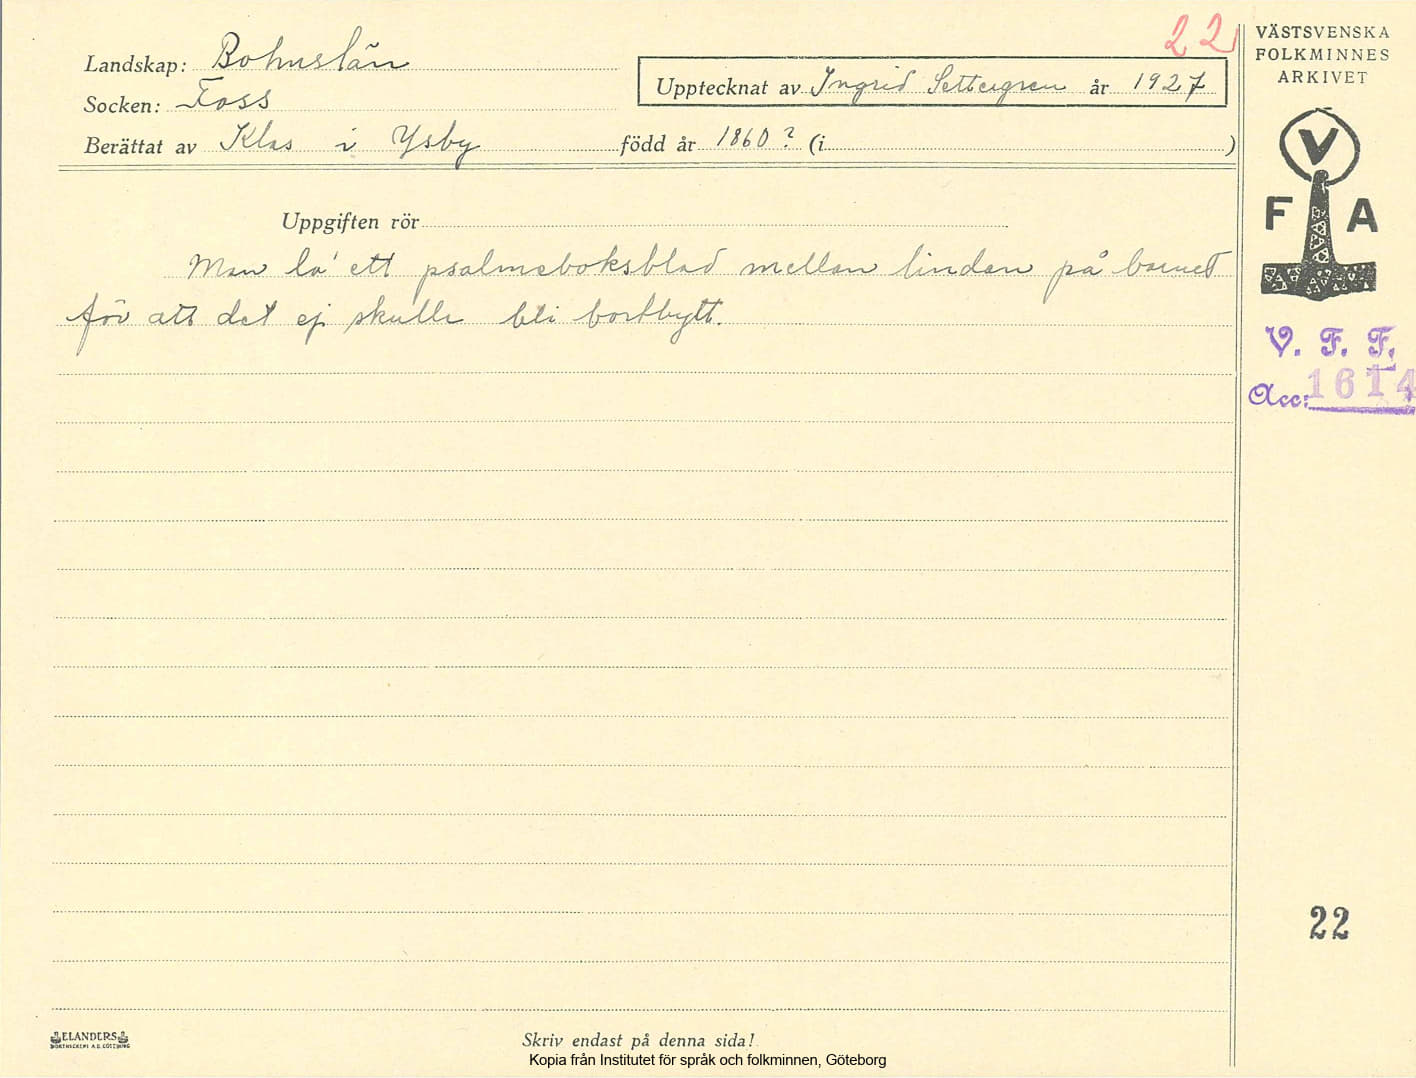 22
VÄSTSVENSKA
FOLKMINNES
ARKIVET
Landskap: Bohuslän
Socken: Foss
Upptecknat av Ingrid Settergren år 1927
Berättat av Klas i Ysby född år 1860? (i )
V
F A
Uppgiften rör
Man la' ett psalmeboksblad mellan lindan på barnet
för att det ej skulle bli bortbytt.
V. F. F.
Acc: 1614
22
ELANDERS
Skriv endast på denna sida!
Kopia från Institutet för språk och folkminnen, Göteborg